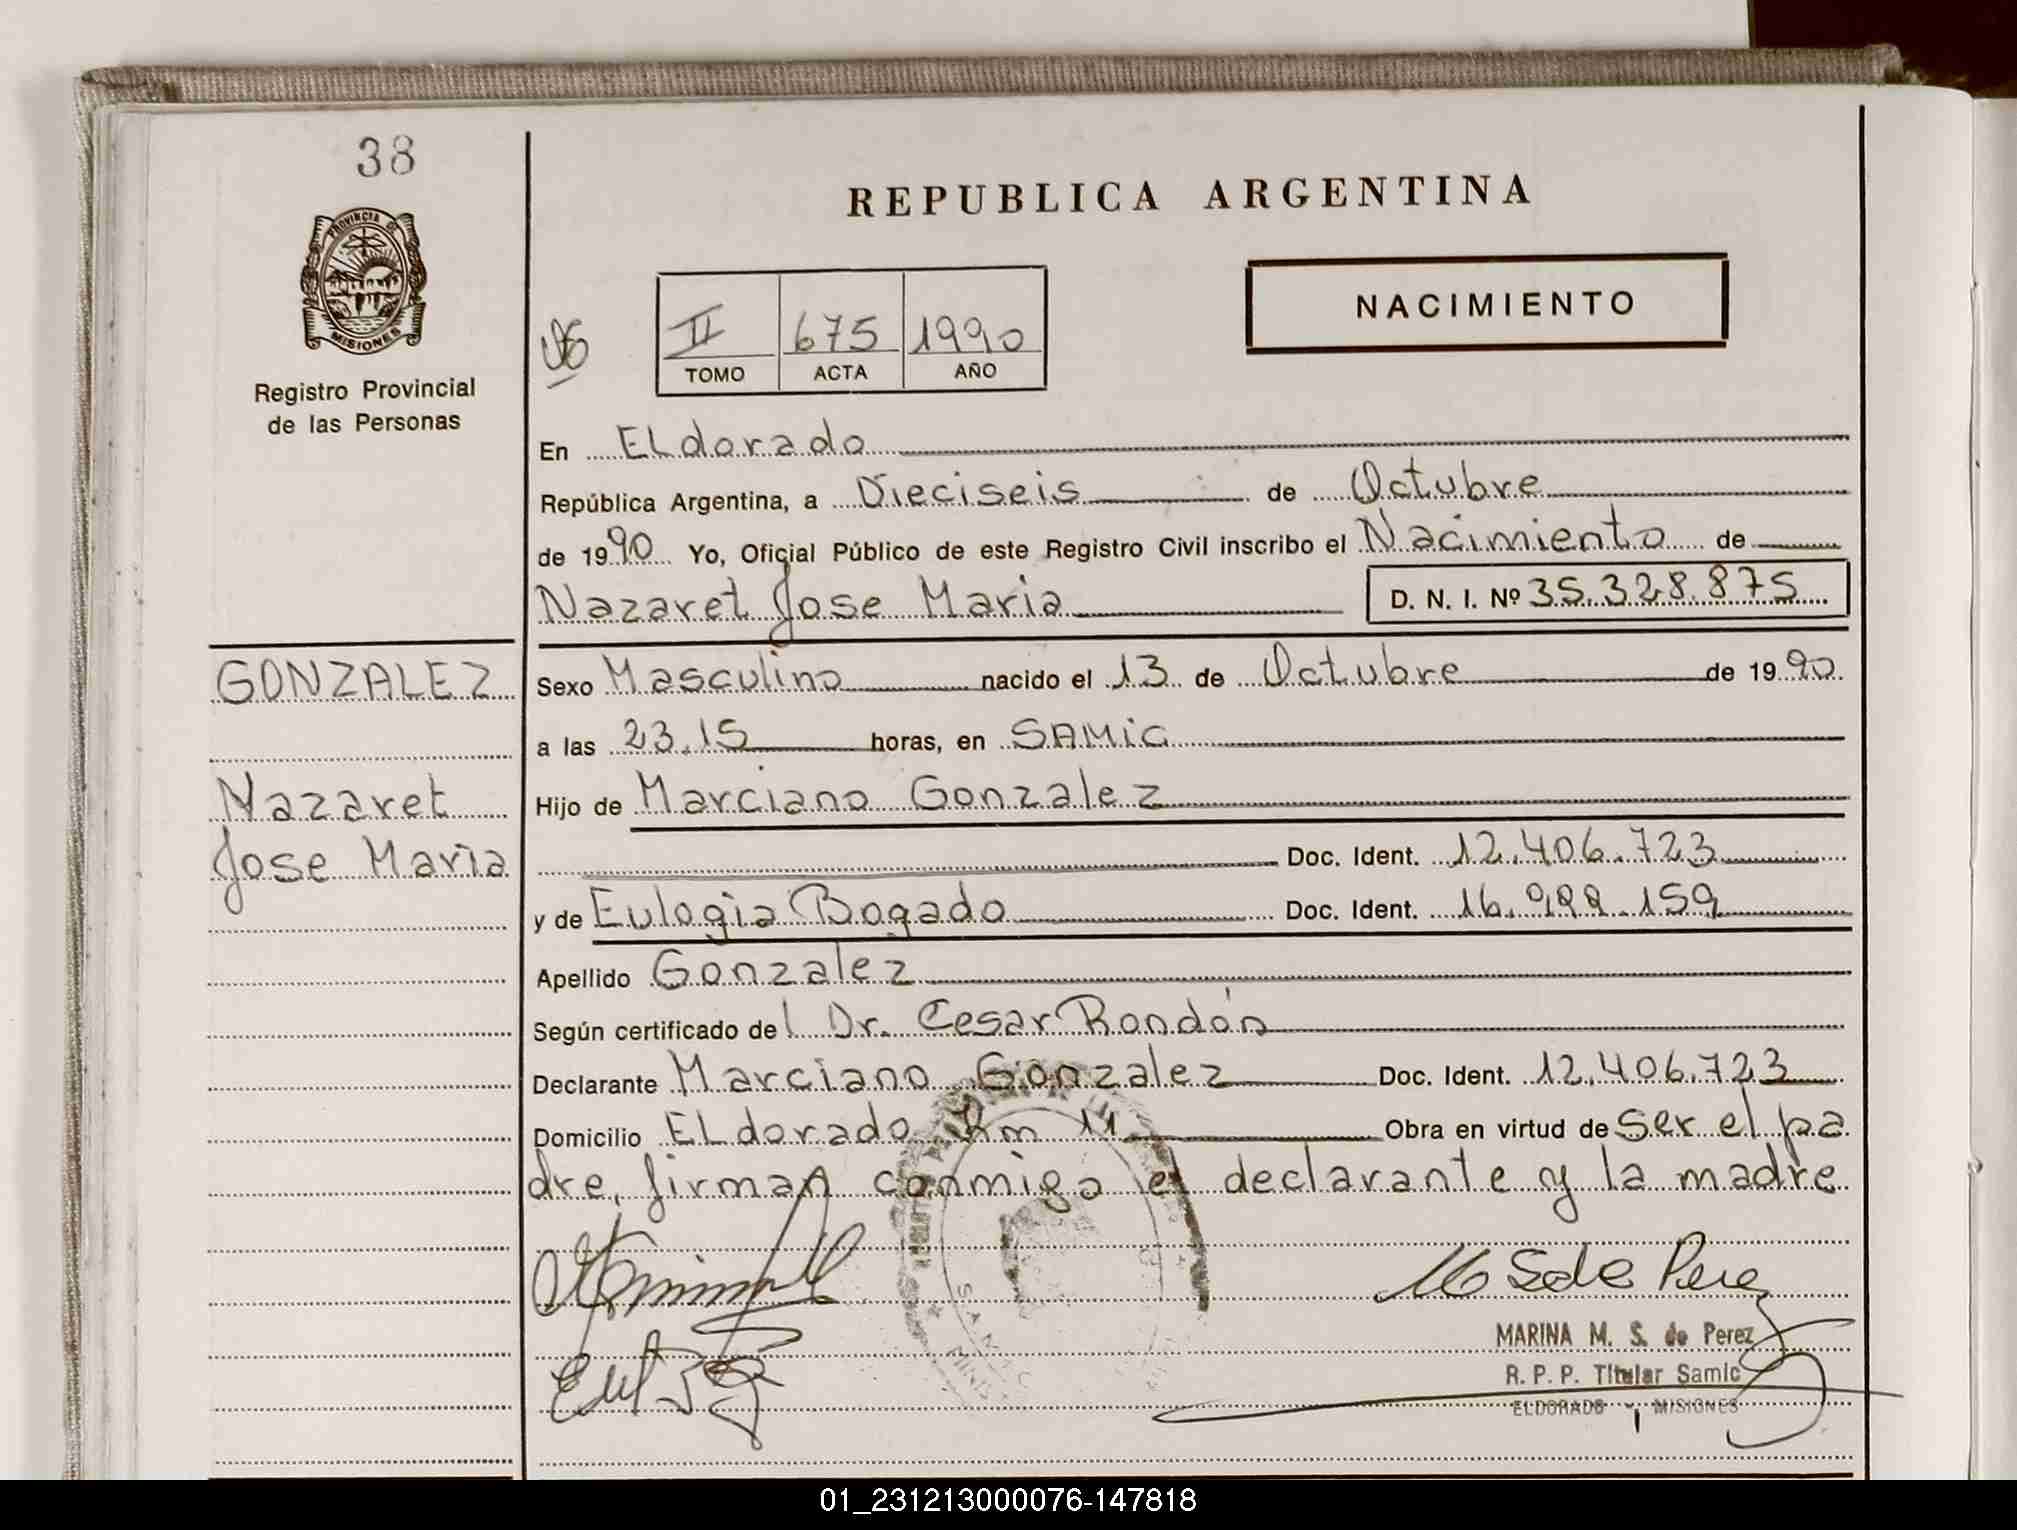 38
REPUBLICA ARGENTINA
PROVINCIA DE
MISIONES
NACIMIENTO
II 675 1990
TOMO ACTA AÑO
Registro Provincial
de las Personas
En ELdorado
República Argentina, a Dieciseis de Octubre
de 1990 Yo, Oficial Público de este Registro Civil inscribo el Nacimiento de
Nazaret Jose Maria D. N. I. Nº 35.328.875
GONZALEZ
Sexo Masculino nacido el 13 de Octubre de 1990
a las 23.15 horas, en SAMIC
Nazaret
Hijo de Marciano Gonzalez
Jose Maria
Doc. Ident. 12.406.723
y de Eulogia Bogado Doc. Ident. 16.988.159
Apellido Gonzalez
Según certificado del Dr. Cesar Rondón
Declarante Marciano Gonzalez Doc. Ident. 12.406.723
Domicilio ELdorado Km 11 Obra en virtud de ser el pa
dre, firman conmigo el declarante y la madre
M S de Perez
MARINA M. S. de Perez
R. P. P. Titular Samic
ELDORADO - MISIONES
01_231213000076-147818